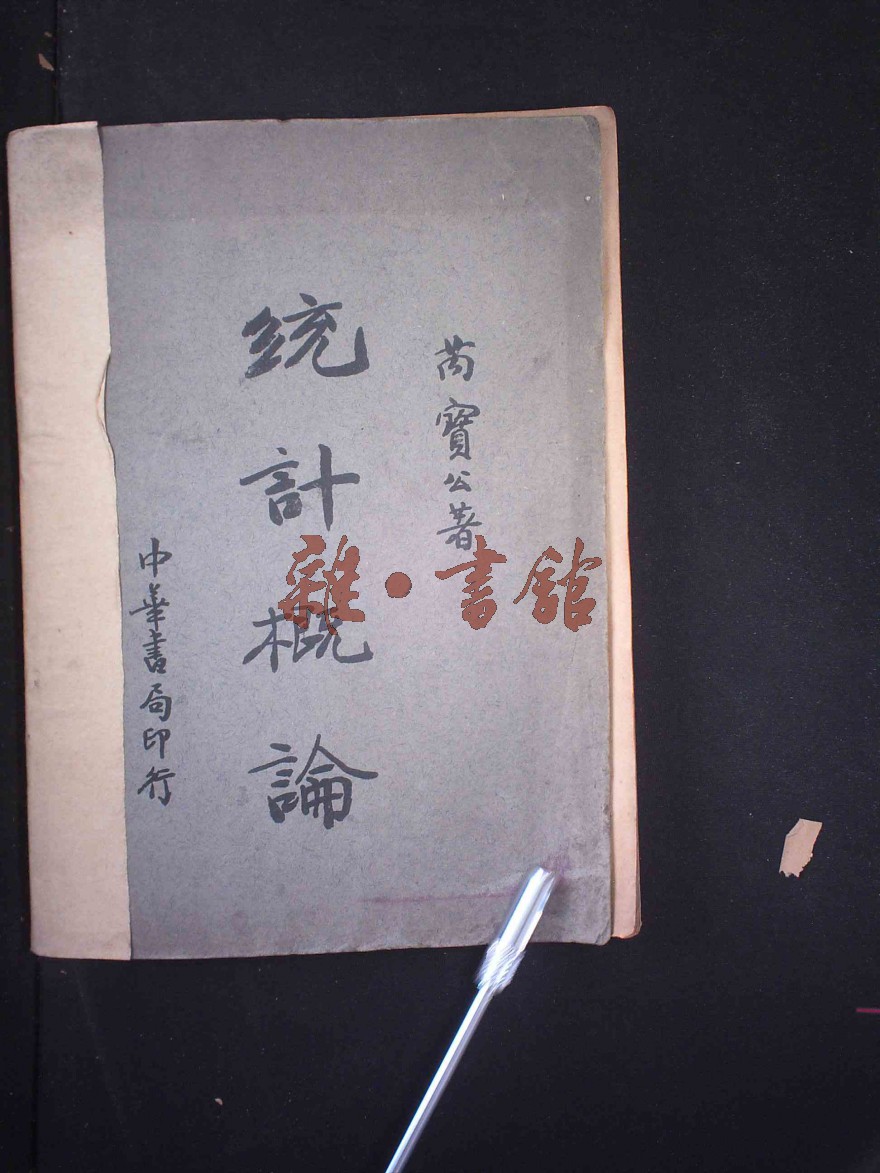 芮寶公著
統計概論
中華書局印行
雜·書館